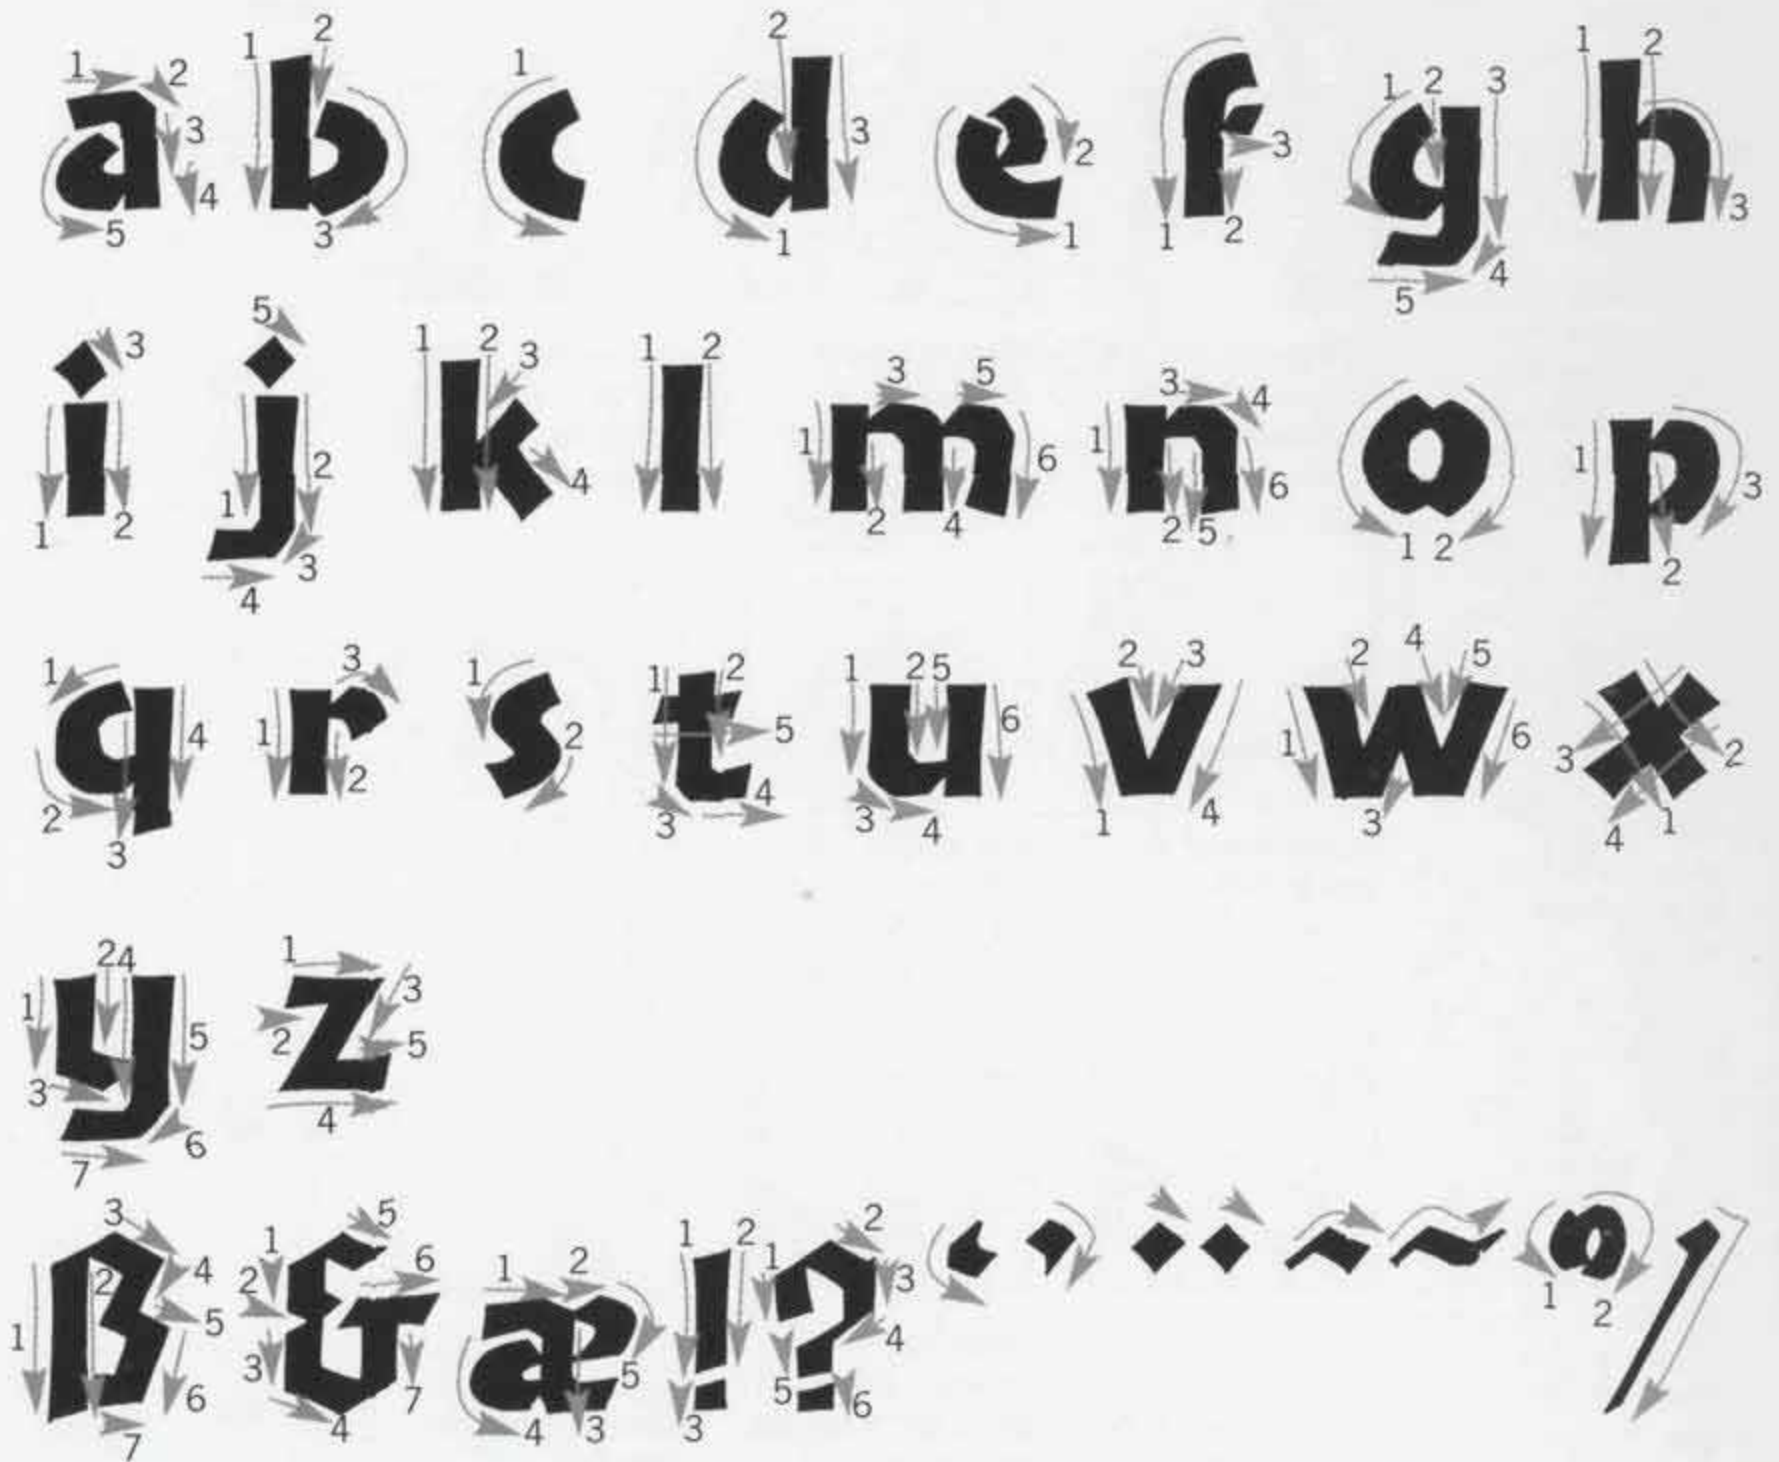 a b c d e f g h
i j k l m n o p
q r s t u v w x
y z
ß & æ ! ? ‘ ’ ¨ ~ ~ ° /